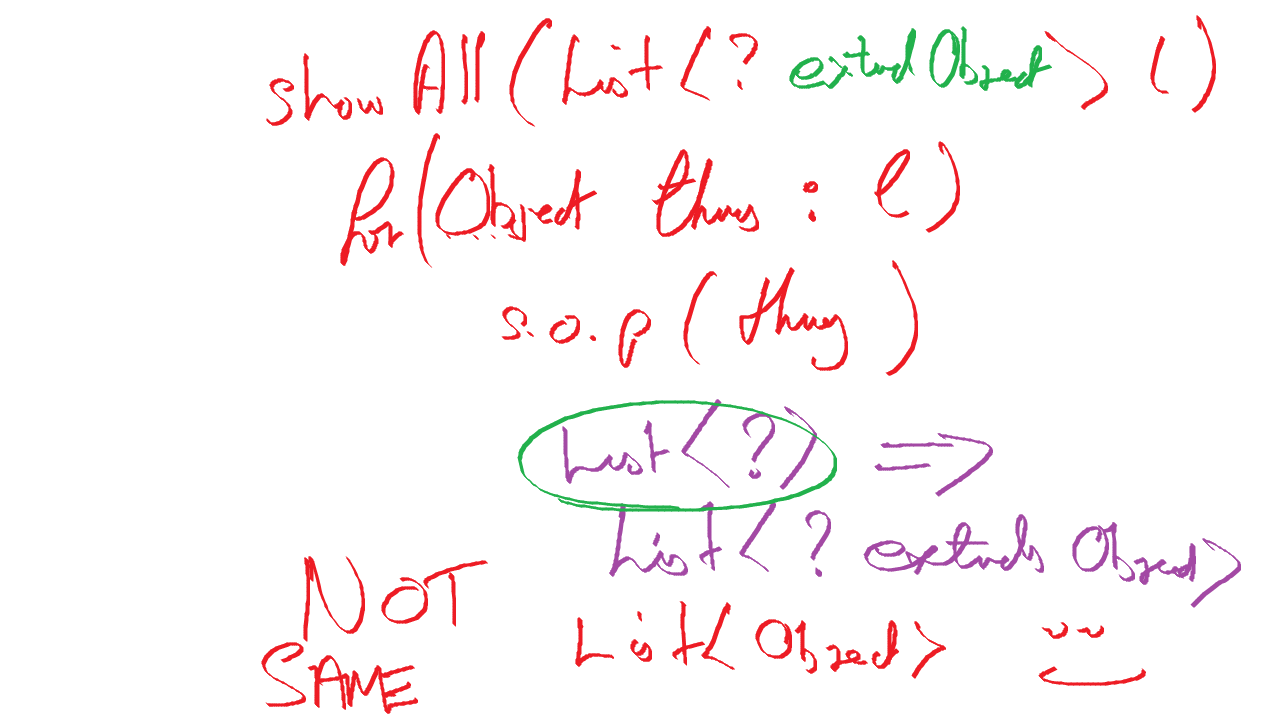 show All (List<? extend Object> l)
for(Object thing : l)
s.o.p (thing)
List<?> =>
List<? extends Object>
NOT List<Object>
SAME